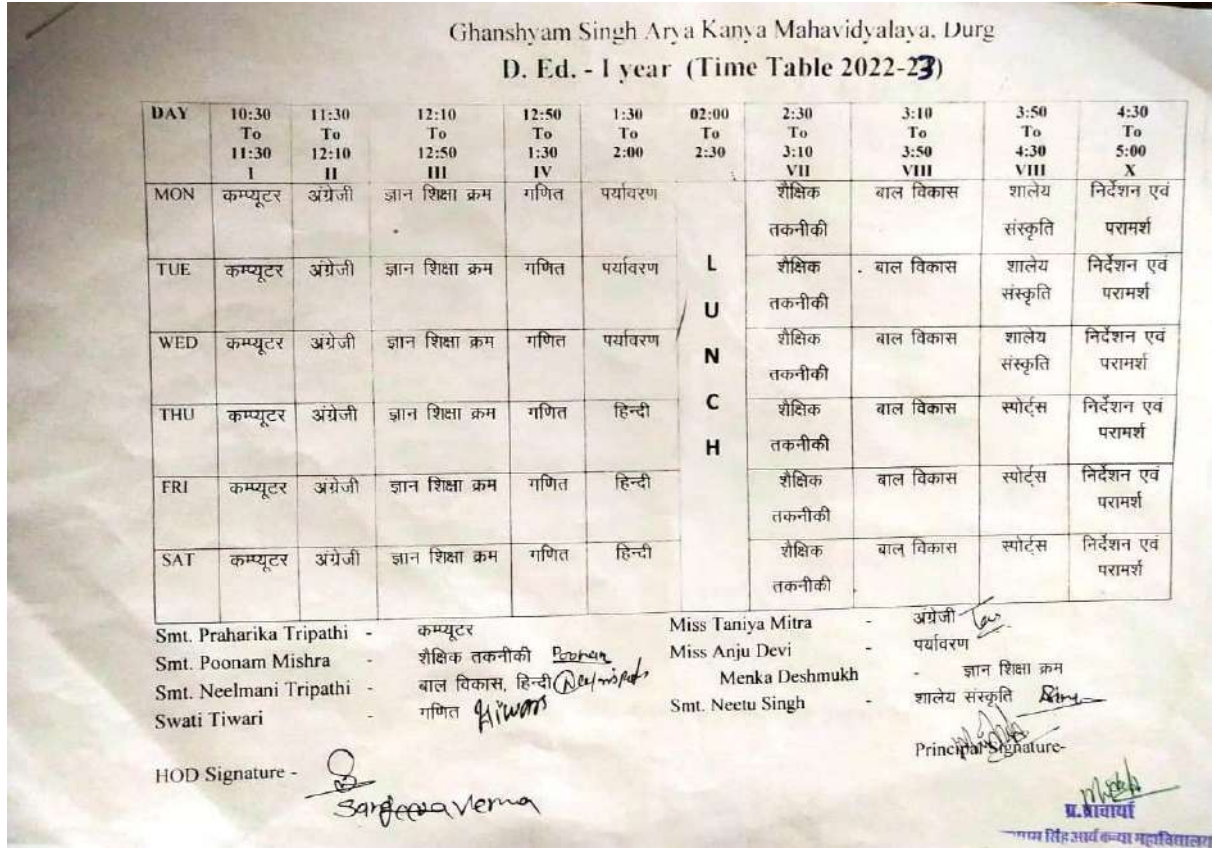 Ghanshyam Singh Arya Kanya Mahavidyalaya, Durg
D. Ed. - I year (Time Table 2022-23)
DAY 10:30 To 11:30 I 11:30 To 12:10 II 12:10 To 12:50 III 12:50 To 1:30 IV 1:30 To 2:00 02:00 To 2:30 2:30 To 3:10 VII 3:10 To 3:50 VIII 3:50 To 4:30 VIII 4:30 To 5:00 X
MON कम्प्यूटर अंग्रेजी ज्ञान शिक्षा क्रम गणित पर्यावरण शैक्षिक तकनीकी बाल विकास शालेय संस्कृति निर्देशन एवं परामर्श
TUE कम्प्यूटर अंग्रेजी ज्ञान शिक्षा क्रम गणित पर्यावरण शैक्षिक तकनीकी बाल विकास शालेय संस्कृति निर्देशन एवं परामर्श
WED कम्प्यूटर अंग्रेजी ज्ञान शिक्षा क्रम गणित पर्यावरण शैक्षिक तकनीकी बाल विकास शालेय संस्कृति निर्देशन एवं परामर्श
THU कम्प्यूटर अंग्रेजी ज्ञान शिक्षा क्रम गणित हिन्दी शैक्षिक तकनीकी बाल विकास स्पोर्ट्स निर्देशन एवं परामर्श
FRI कम्प्यूटर अंग्रेजी ज्ञान शिक्षा क्रम गणित हिन्दी शैक्षिक तकनीकी बाल विकास स्पोर्ट्स निर्देशन एवं परामर्श
SAT कम्प्यूटर अंग्रेजी ज्ञान शिक्षा क्रम गणित हिन्दी शैक्षिक तकनीकी बाल विकास स्पोर्ट्स निर्देशन एवं परामर्श
LUNCH
Smt. Praharika Tripathi - कम्प्यूटर
Smt. Poonam Mishra - शैक्षिक तकनीकी Poonam
Smt. Neelmani Tripathi - बाल विकास, हिन्दी
Swati Tiwari - गणित
Miss Taniya Mitra - अंग्रेजी
Miss Anju Devi - पर्यावरण
Menka Deshmukh - ज्ञान शिक्षा क्रम
Smt. Neetu Singh - शालेय संस्कृति
HOD Signature -
Verma
Principal Signature-
प्र.प्राचार्या
सिंह आर्य कन्या महाविद्यालय